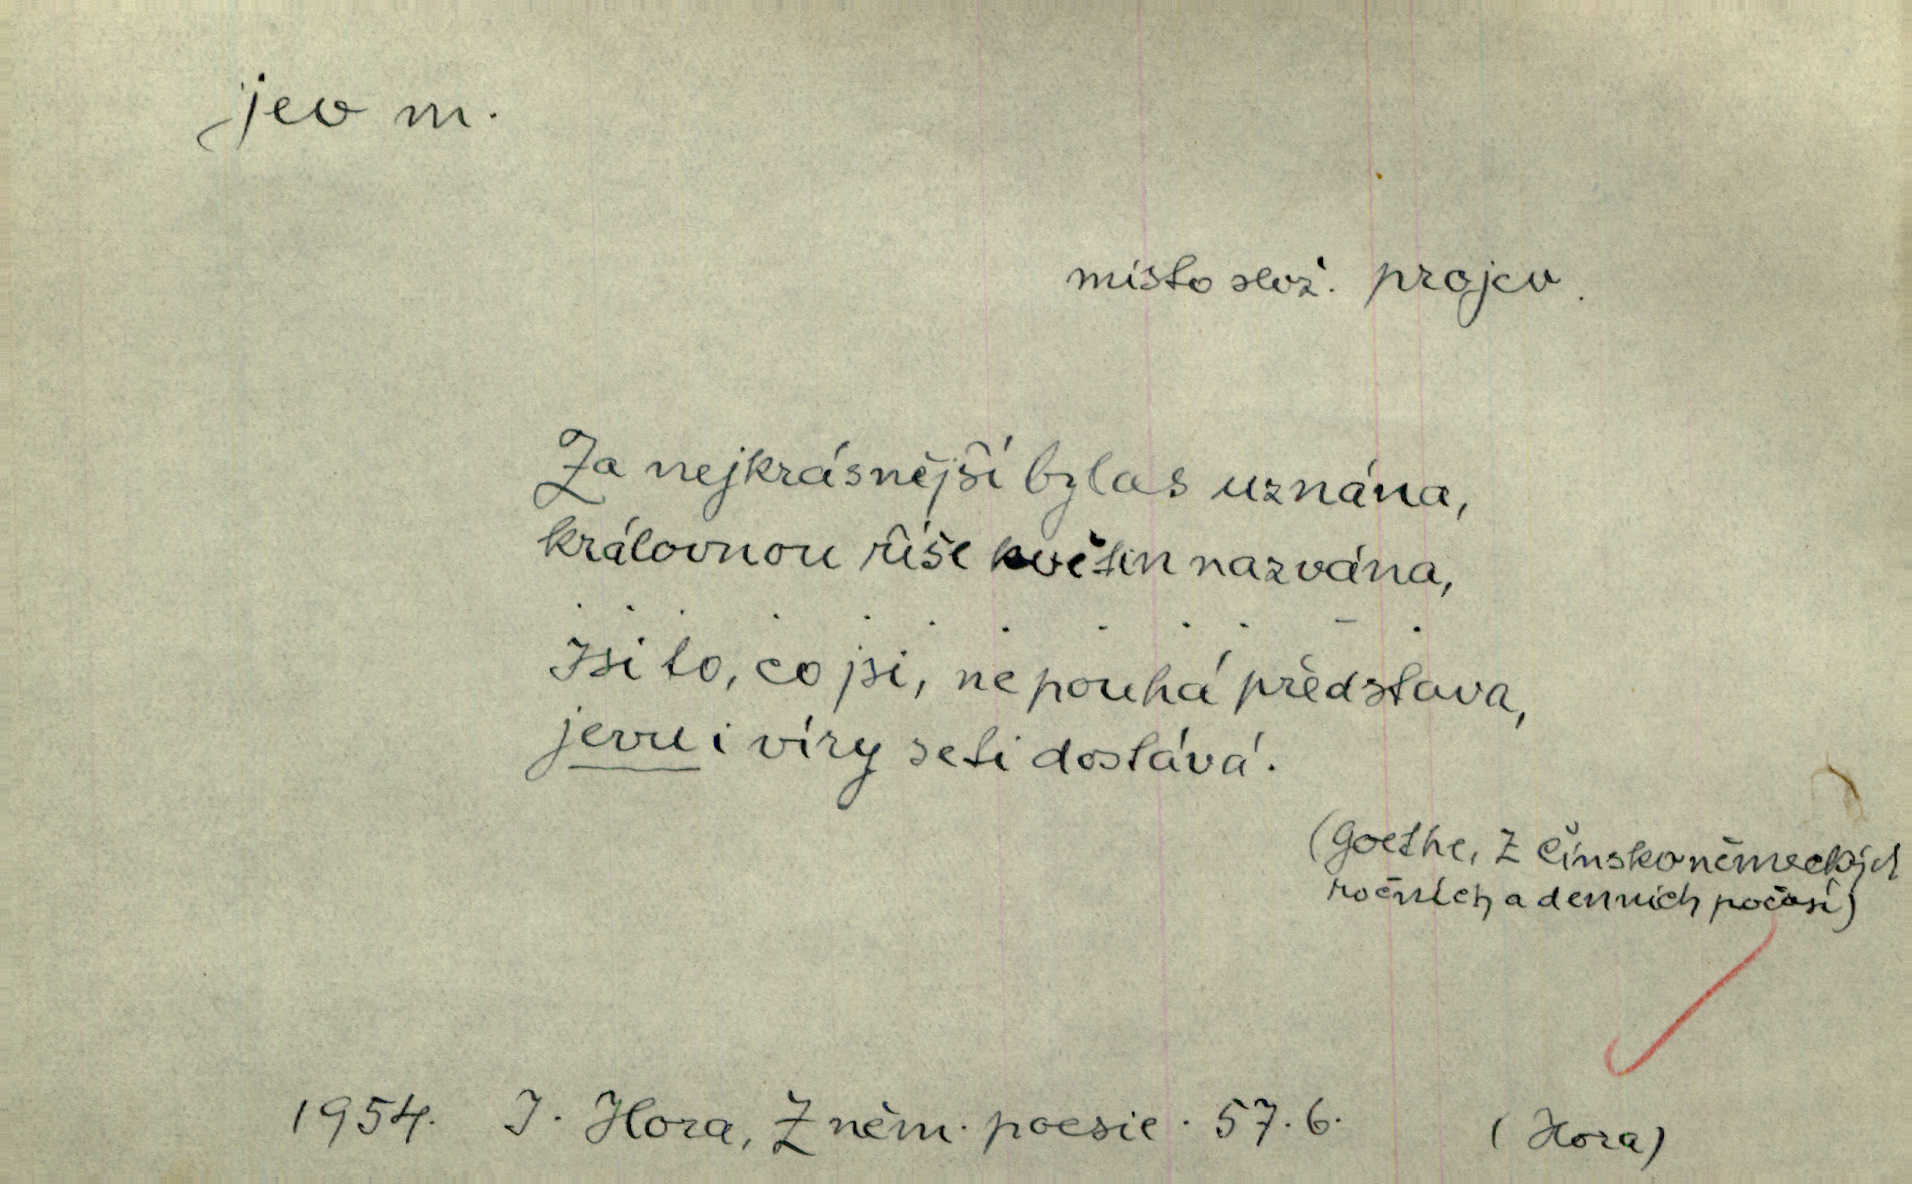 jev m.
místo slož. projev.
Za nejkrásnější bylas uznána,
královnou říše květin nazvána,
. . . . . . . . . . . .
Jsi to, co jsi, ne pouhá představa,
jevu i víry se ti dostává.
(Goethe, Z čínskoněmeckých
ročních a denních počasí)
1954. J. Hora, Z něm. poesie. 57.6. (Hora)